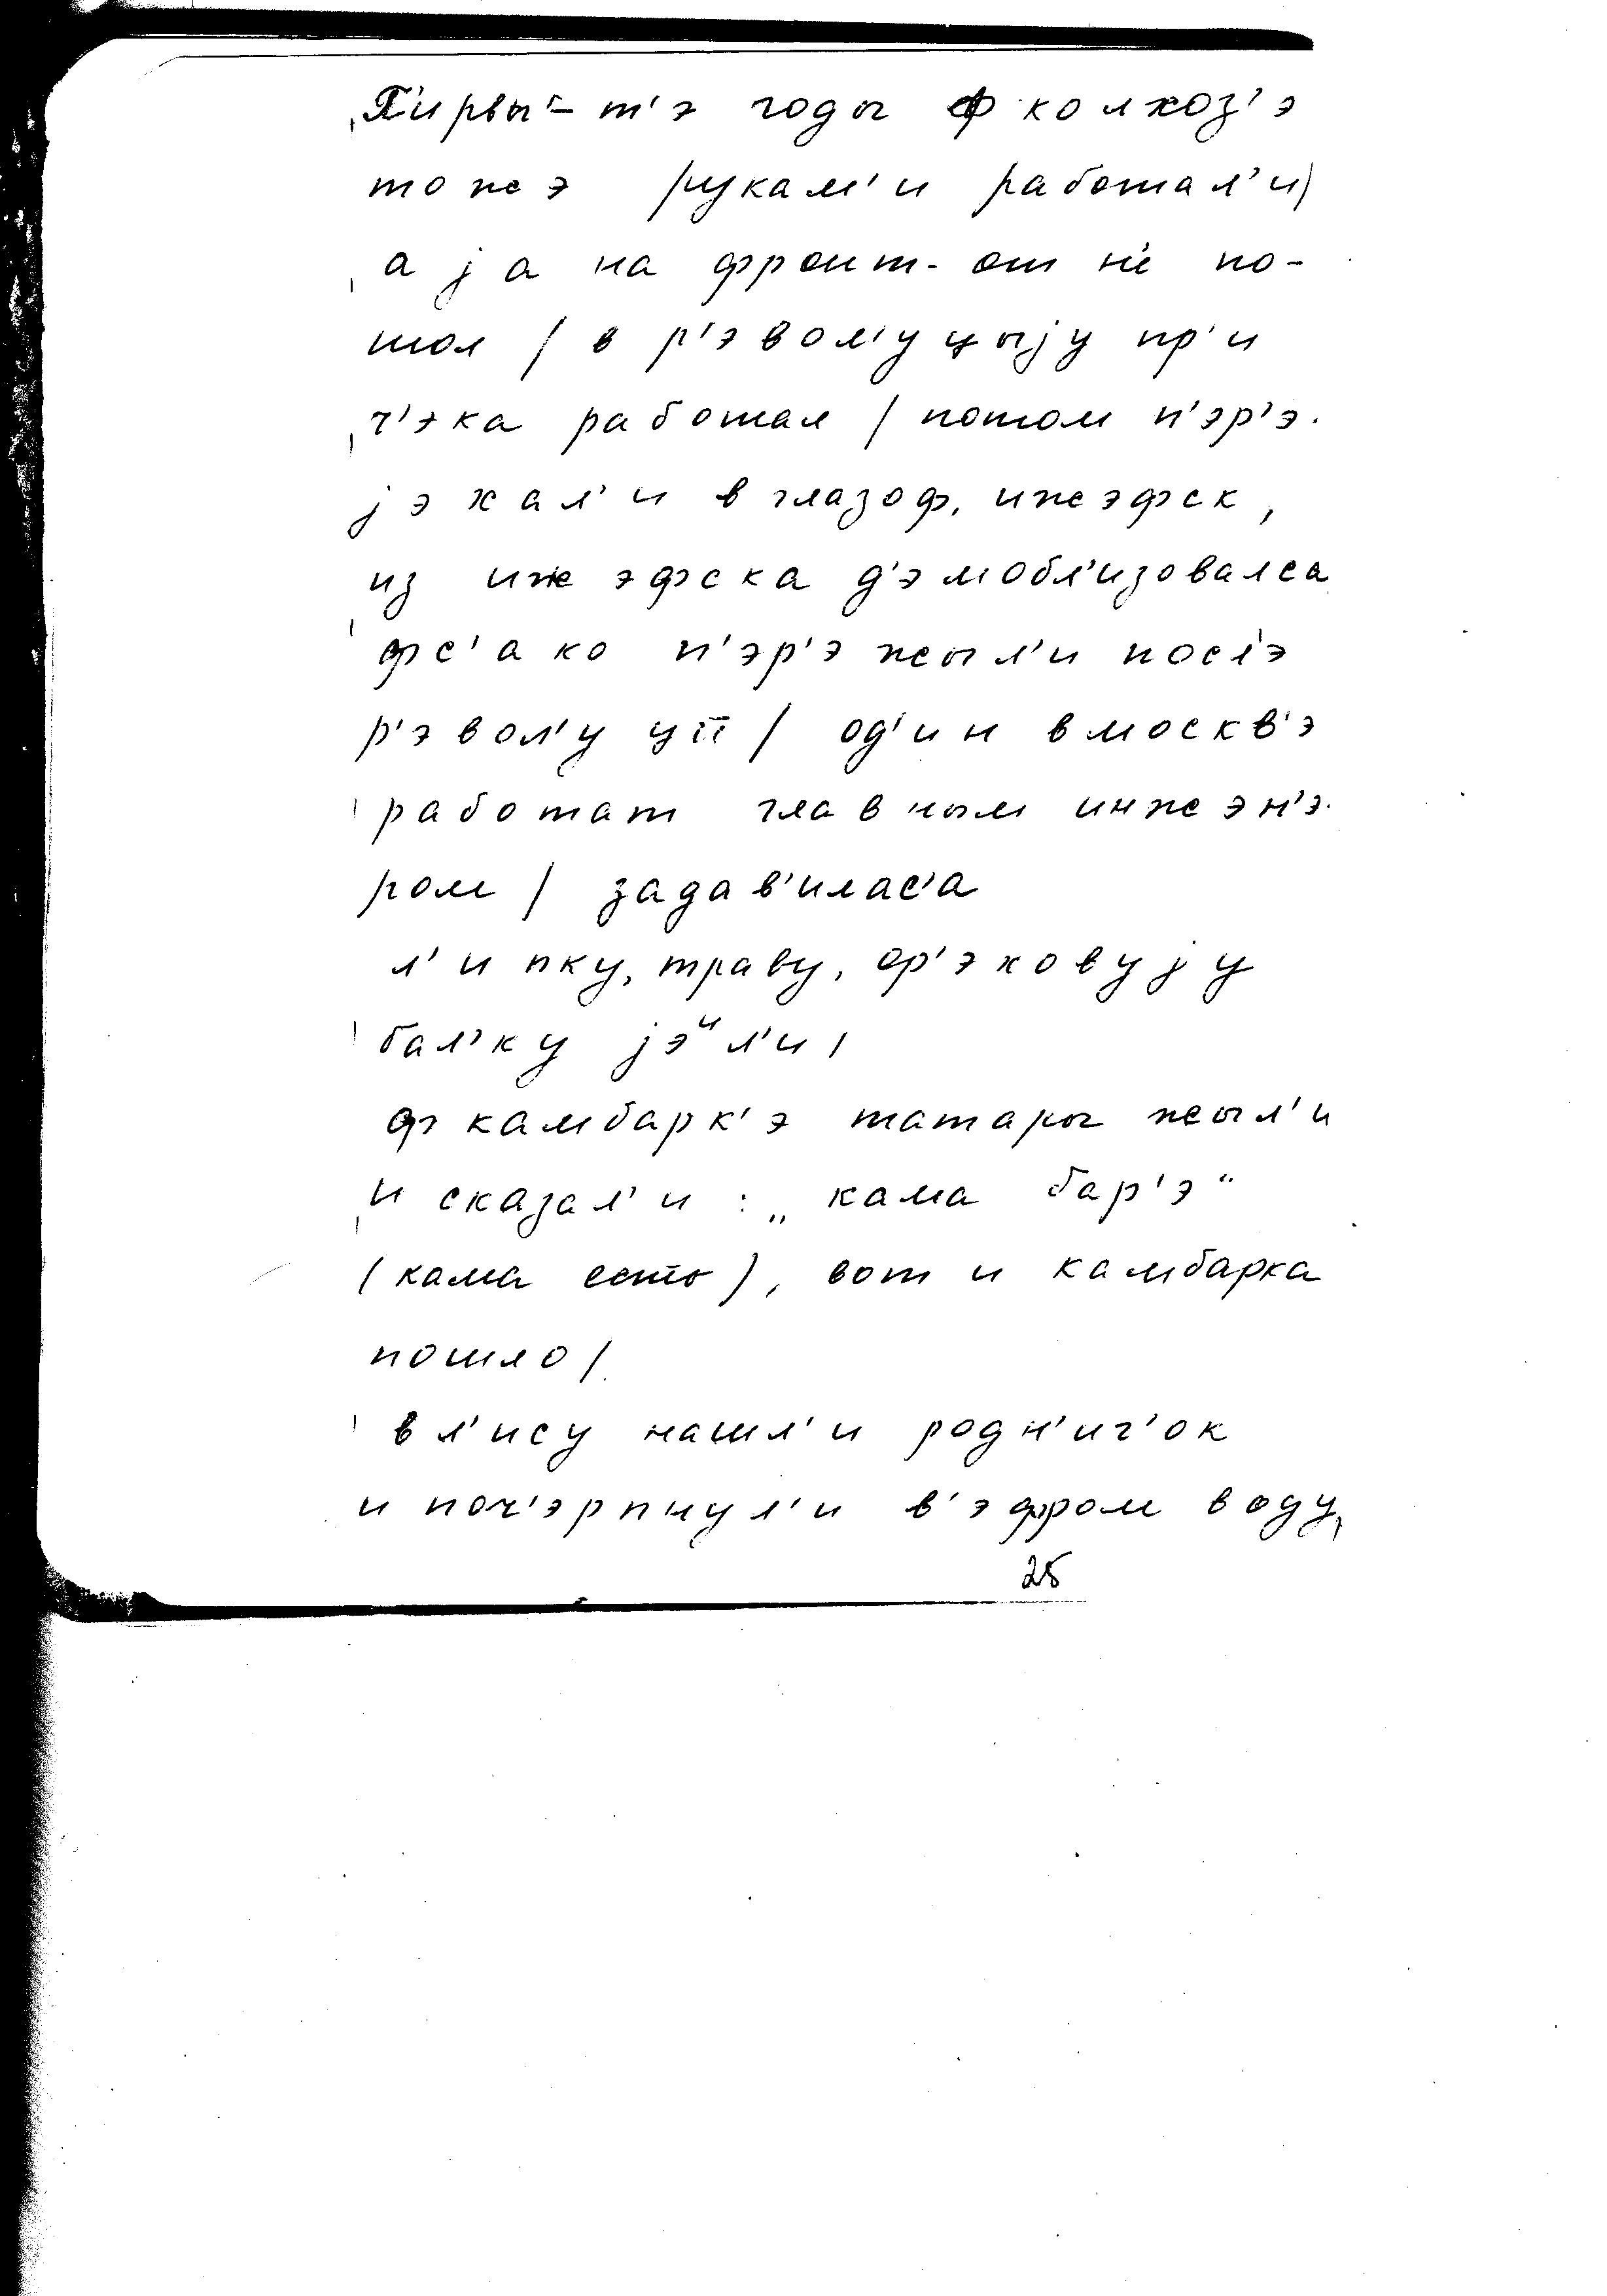 П'ирвы̄-т'э годы ф колхоз'э
тожэ рукам'и работал'и/
а jа на фронт-от н'е по-
шол / в р'эвол'уцыjу пр'и
ч'эка работал / потом п'эр'э-
jэхал'и в глазоф, ижэфск,
из ижэфска д'эмобл'изовалса
фс'ако п'эр'эжыл'и посл'э
р'эвол'уцыӣ / од'ин в москв'э
работат главным инжэн'э-
ром / задав'илас'а
л'ипку, траву, ор'эховуjу
бал'ку jэᵘл'и /
ф камбарк'э татары жыл'и
и сказал'и: „кама бар'э"
(кама есть), вот и камбарка
пошло /
в л'ису нашл'и родн'ич'ок
и поч'эрпнул'и в'эдром воду,
25